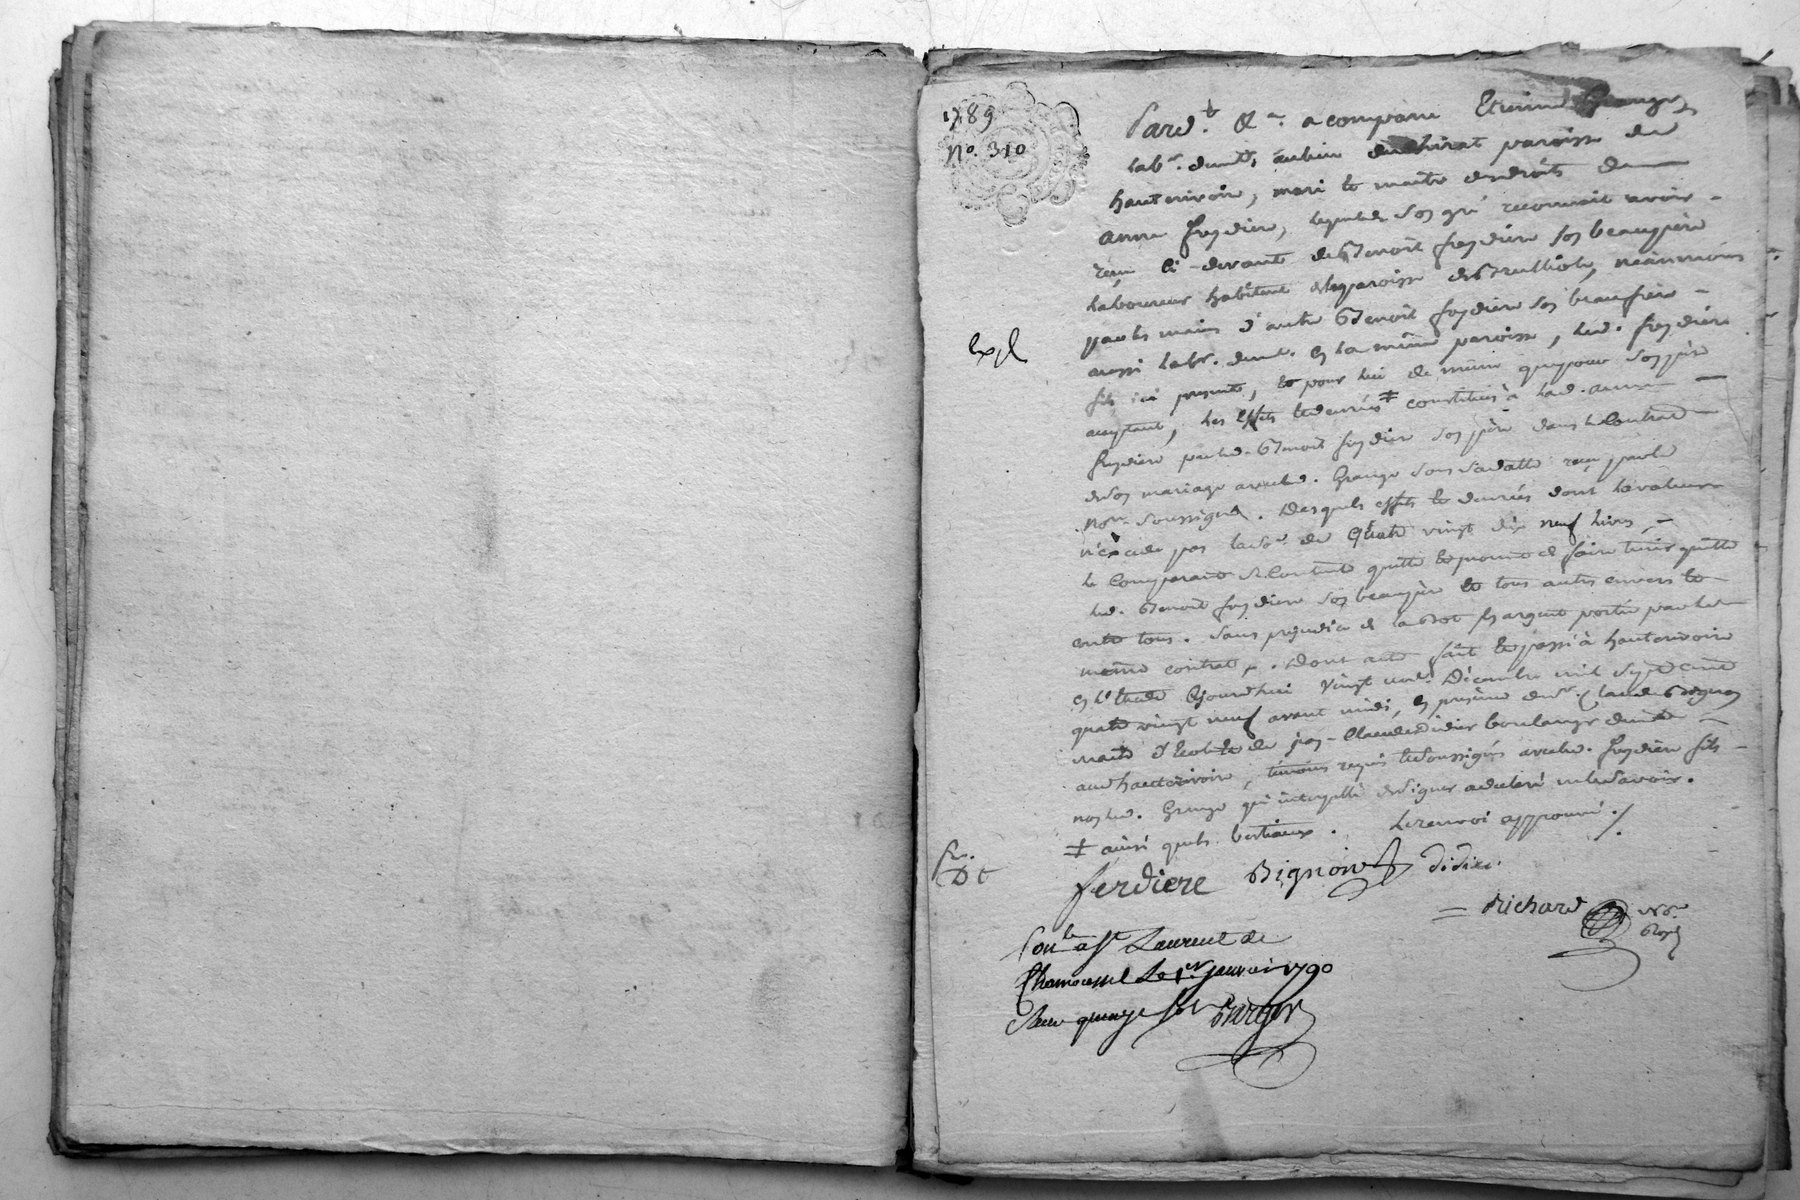 1789
N°. 310
Pard.t &a. a comparu Etienne Grange
lab.r dem.t, au lieu du Thirat paroisse de
hauterivoire, mari et maitre des droits de
anne feydiere, lequel de son gré reconnait avoir
reçu ci-devant de Benoit feydiere son beaupère
laboureur habitant de la paroisse de Brulliole, néanmoins
par les mains d'autre Benoit feydiere son beaufrère
aussi lab.r dem.t en la même paroisse, led. feydiere
fils ici present, et pour lui de même que pour son père
acceptant, les effets et denrées ‡ constitués à lad. anne
feydiere par led. Benoit feydiere son père dans le Contrat
de son mariage avec led. Grange sous sa datte reçu par le
No.re soussigné. Desquels effets et denrées dont la valeur
n'éxcede pas la so.e de Quatre vingt dix neuf livres,
le Comparant se contente quitte et promet de faire tenir quitte
led. Benoit feydiere son beaupère et tous autres envers et
contre tous. Sans prejudice de la dot en argent portée par led.
même contrat. Dont acte fait et passé à hauterivoire
en l'Etude aujourd'hui vingt un.e Décembre mil Sept cent
quatre vingt neuf avant midi, en présence de s.r Claude Bignon
maitre d'Ecole et de jean-Claude Didier boulanger dem.t
aud hauterivoire, témoins requis et soussignés avec led. feydiere fils
non led. Grange qui interpellé de signer a déclaré ne le savoir.
‡ ainsi que les bestiaux. Le renvoi approuvé ./.
Exp
ferdiere Bignon Didier
Richard No.re
Royal
Con.lé a S.t Laurent de
Chamousset Le 1.er janvier 1790
Reçu quinze sols